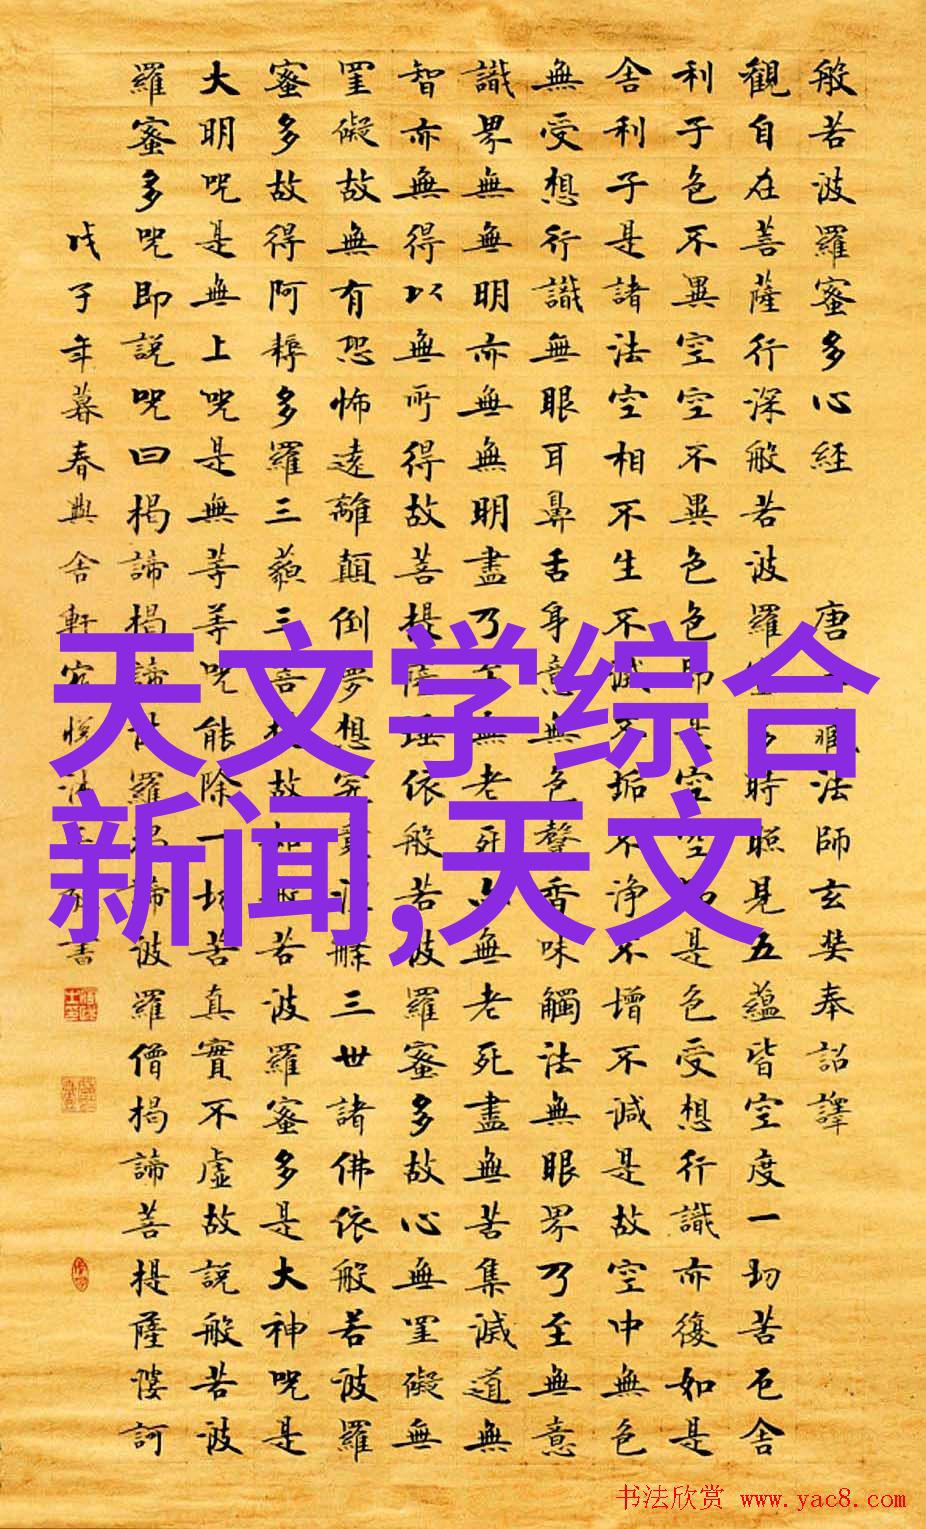 般若波羅蜜多心經 唐三藏法師玄奘奉詔譯
觀自在菩薩行深般若波羅蜜多時照見五蘊皆空度一切苦厄舍
利子色不異空空不異色色即是空空即是色受想行識亦復如是
舍利子是諸法空相不生不滅不垢不淨不增不減是故空中無色
無受想行識無眼耳鼻舌身意無色聲香味觸法無眼界乃至無意
識界無無明亦無無明盡乃至無老死亦無老死盡無苦集滅道無
智亦無得以無所得故菩提薩埵依般若波羅蜜多故心無罣礙無
罣礙故無有恐怖遠離顛倒夢想究竟涅槃三世諸佛依般若波羅
蜜多故得阿耨多羅三藐三菩提故知般若波羅蜜多是大神呪是
大明呪是無上呪是無等等呪能除一切苦真實不虛故說般若波
羅蜜多呪即說呪曰揭諦揭諦波羅揭諦波羅僧揭諦菩提薩婆訶
戊子年暮春興舍軒 書
天文学综合
新闻,天文
书法欣赏 www.yac8.com